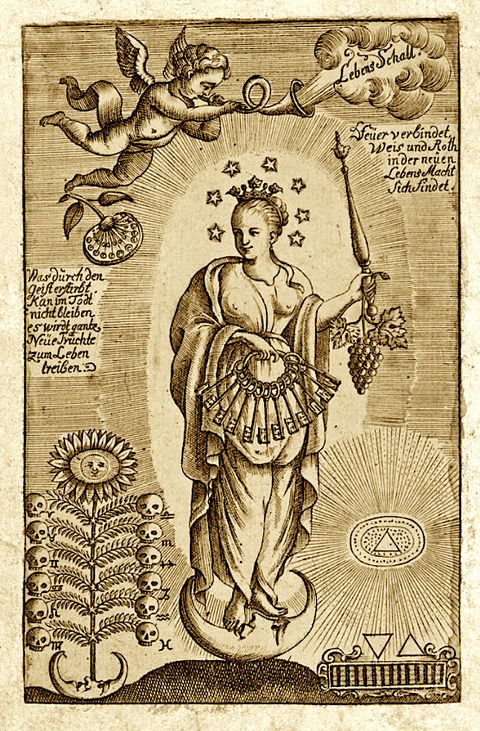 Lebens Schall.
Feuer verbindet
Weis und Roth
in der neuen
Lebens Macht
Sich findet.
Was durch den
geist erstirbt
Kan im Todt
nicht bleiben
es wirdt gantz
Neue früchte
zum Leben
treiben.
♎
♏
♐
♑
♒
♓
♊
♌
♍